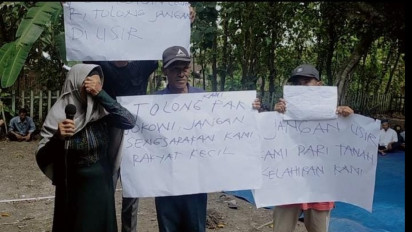 TOLONG JANGAN
DI USIR
TOLONG PAK
JOKOWI JANGAN
SENGSARAKAN KAMI
RAKYAT KECIL
JANGAN USIR
KAMI DARI TANAH
KELAHIRAN KAMI